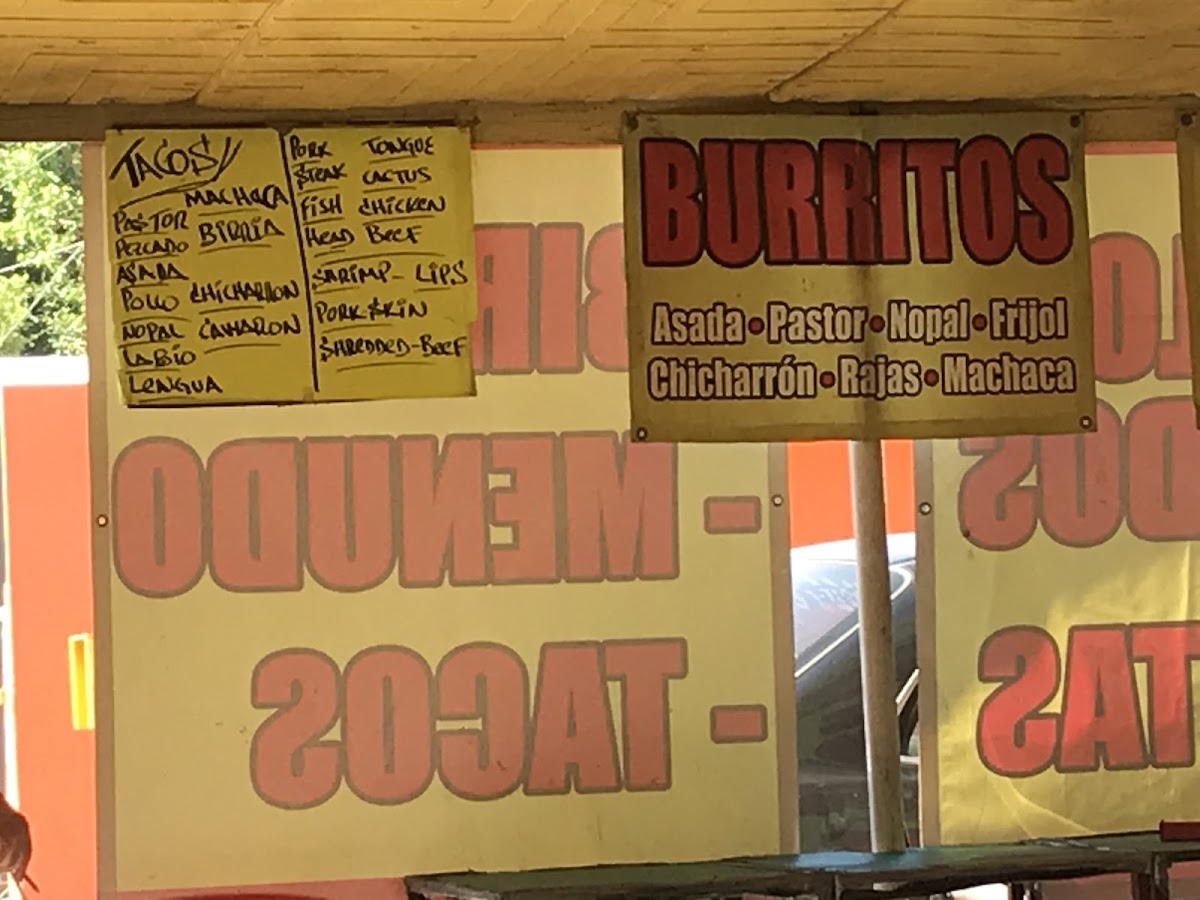 TACOS//
MACHACA
PASTOR
BIRRIA
PESCADO
ASADA
POLLO CHICHARRON
NOPAL CAMARON
LABIO
LENGUA
PORK TONGUE
STEAK CACTUS
FISH CHICKEN
HEAD BEEF
SHRIMP- LIPS
PORK SKIN
SHREDDED-BEEF
BURRITOS
Asada • Pastor • Nopal • Frijol
Chicharrón • Rajas • Machaca
- MENUDO
- TACOS